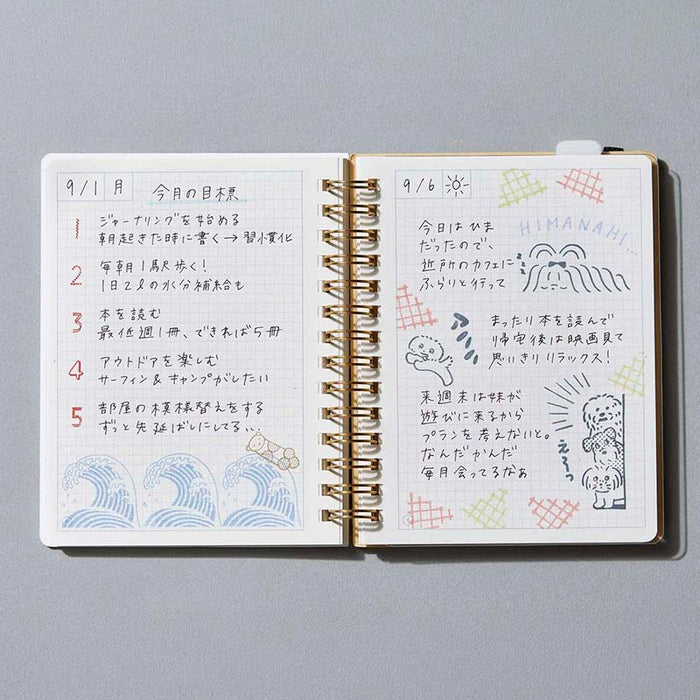 9/1 月
今月の目標
1
ジャーナリングを始める
朝起きた時に書く→習慣化
2
毎朝1駅歩く!
1日2ℓの水分補給も
3
本を読む
最低週1冊、できれば5冊
4
アウトドアを楽しむ
サーフィン&キャンプがしたい
5
部屋の模様替えをする
ずっと先延ばしにしてる...
9/6
HIMANAHI...
今日はひま
だったので、
近所のカフェに
ふらりと行って
まったり本を読んで
帰宅後は映画見て
思いきりリラックス!
来週末は妹が
遊びに来るから
プランを考えないと。
なんだかんだ
毎月会ってるなぁ
えーっ